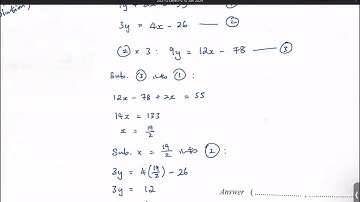 3y = 4x - 26 —— ②
② × 3 : 9y = 12x - 78 —— ③
Sub. ③ into ① :
12x - 78 + 2x = 55
14x = 133
x = 19/2
Sub. x = 19/2 into ② :
3y = 4(19/2) - 26
3y = 12
Answer (